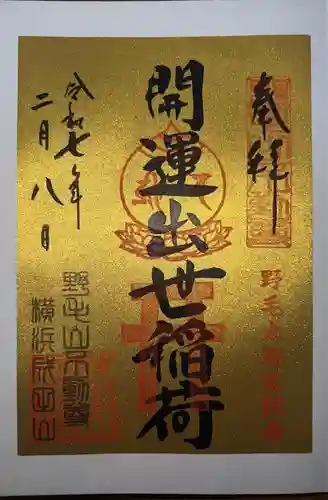 奉拝
開運出世稲荷
令和七年
二月八日
野毛山不動尊
横浜成田山